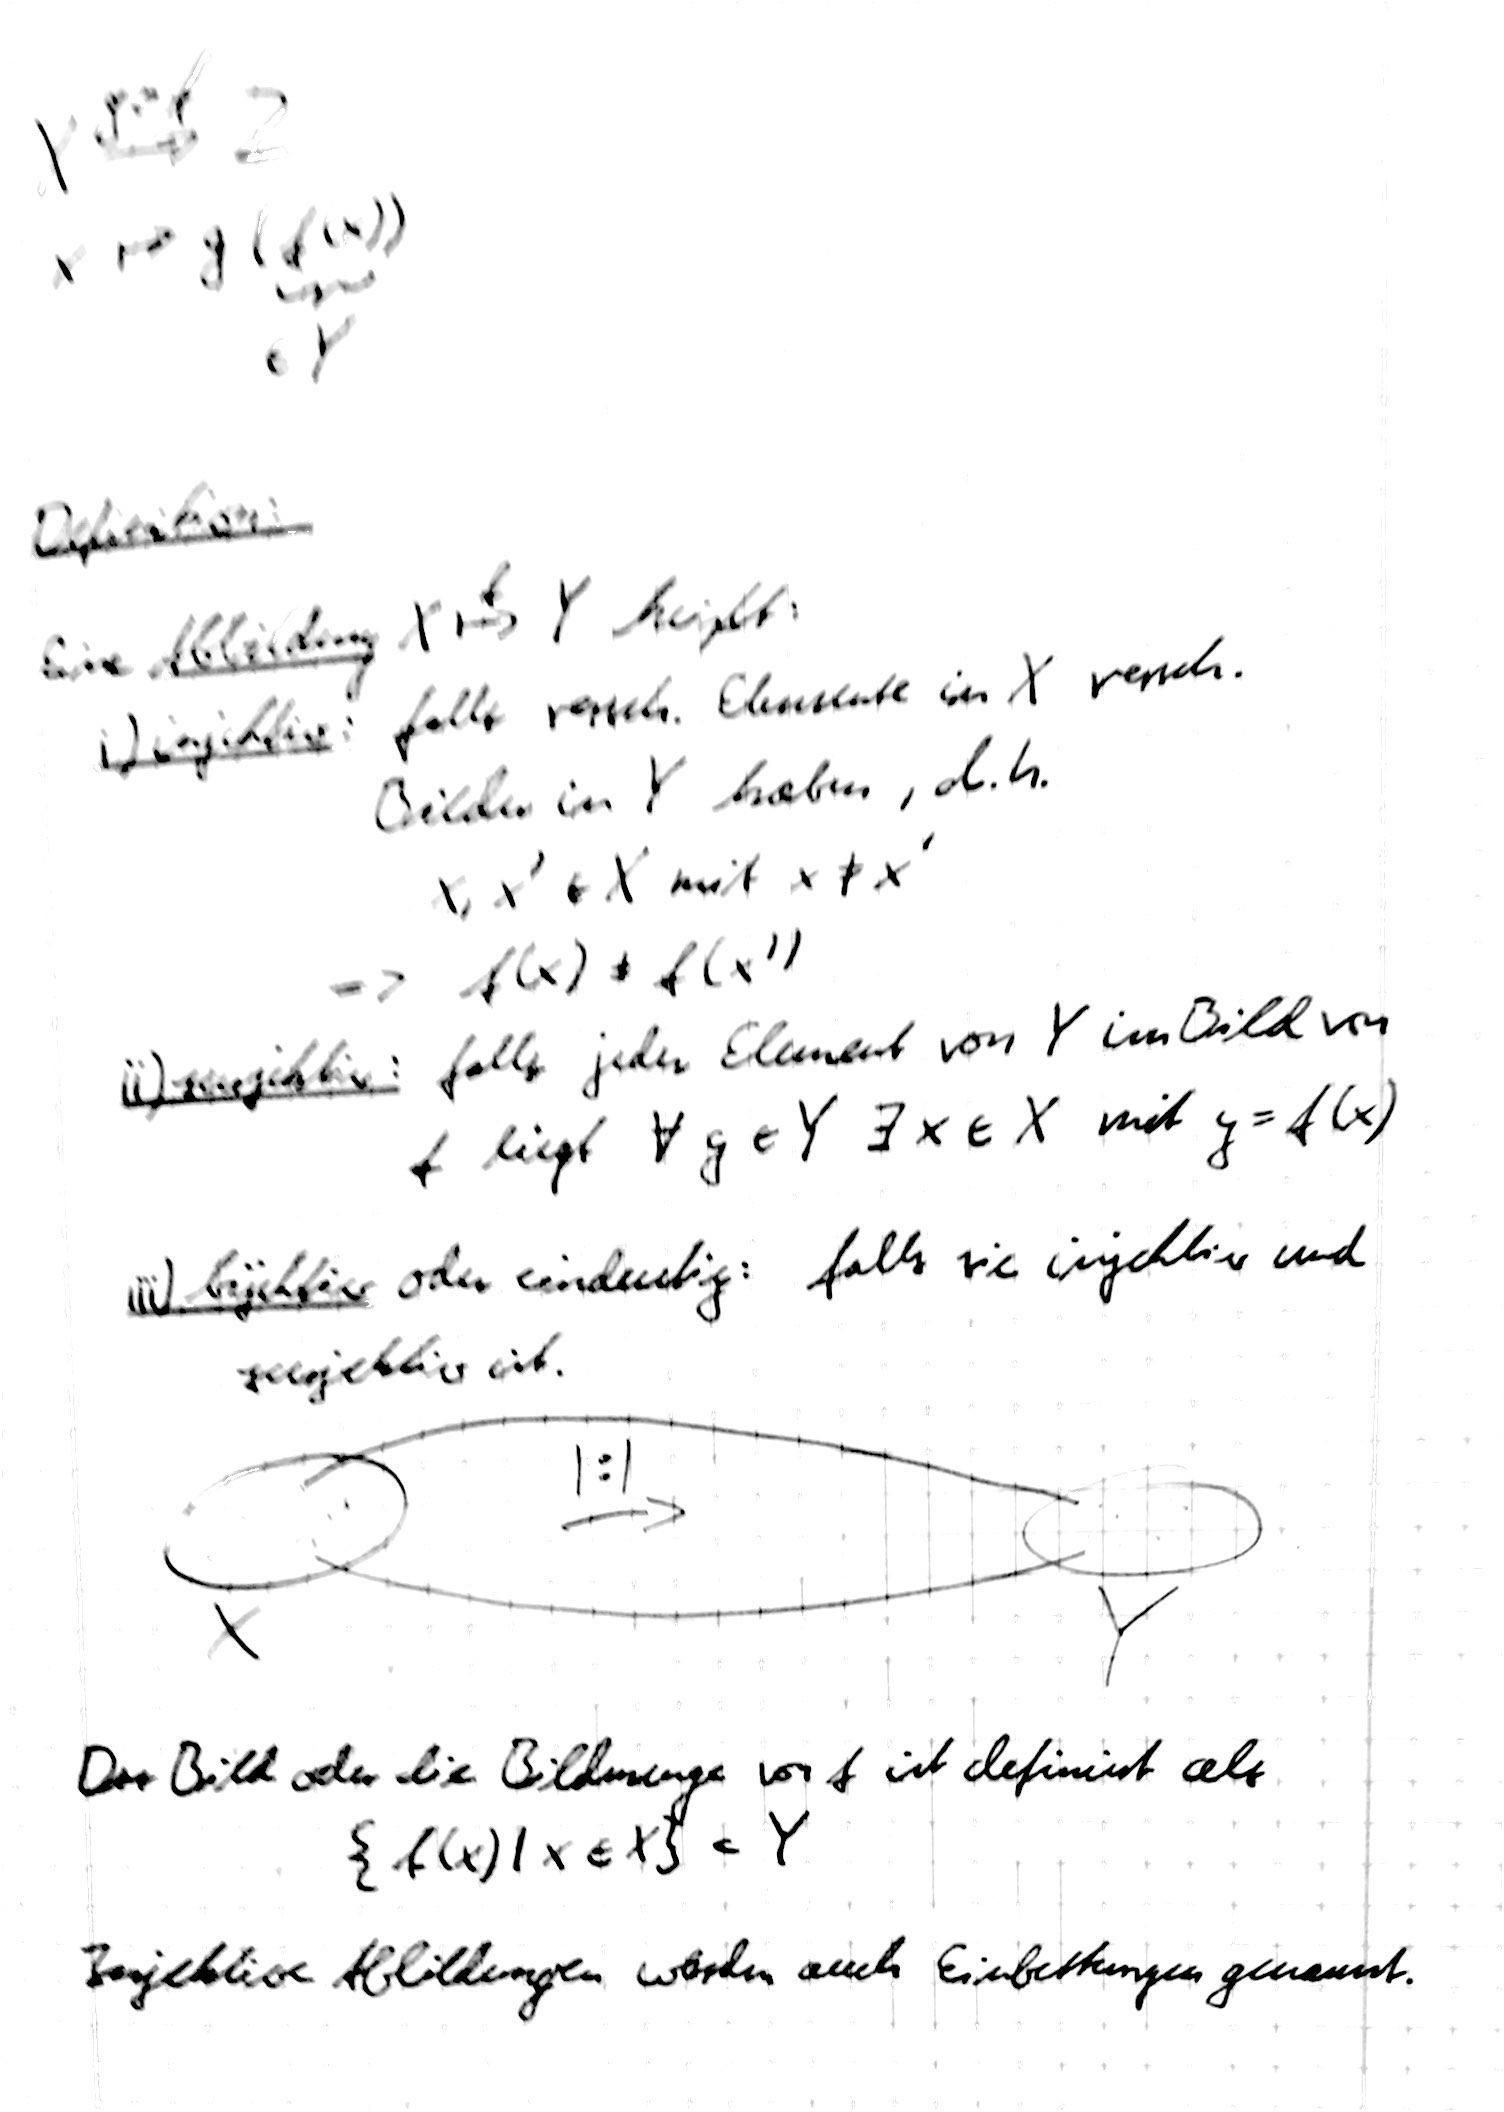 Z
x ↦ g(f(x))
∈ Y
Definition:
Eine Abbildung X ↦ Y heißt:
i) injektiv: falls versch. Elemente in X versch.
Bilder in Y haben, d.h.
x, x' ∈ X mit x ≠ x'
=> f(x) ≠ f(x')
ii) surjektiv: falls jedes Element von Y im Bild von
f liegt ∀ y ∈ Y ∃ x ∈ X mit y = f(x)
iii) bijektiv oder eindeutig: falls sie injektiv und
surjektiv ist.
1:1
X Y
Das Bild oder die Bildmenge von f ist definiert als
{ f(x) | x ∈ X } ⊂ Y
Injektive Abbildungen werden auch Einbettungen genannt.